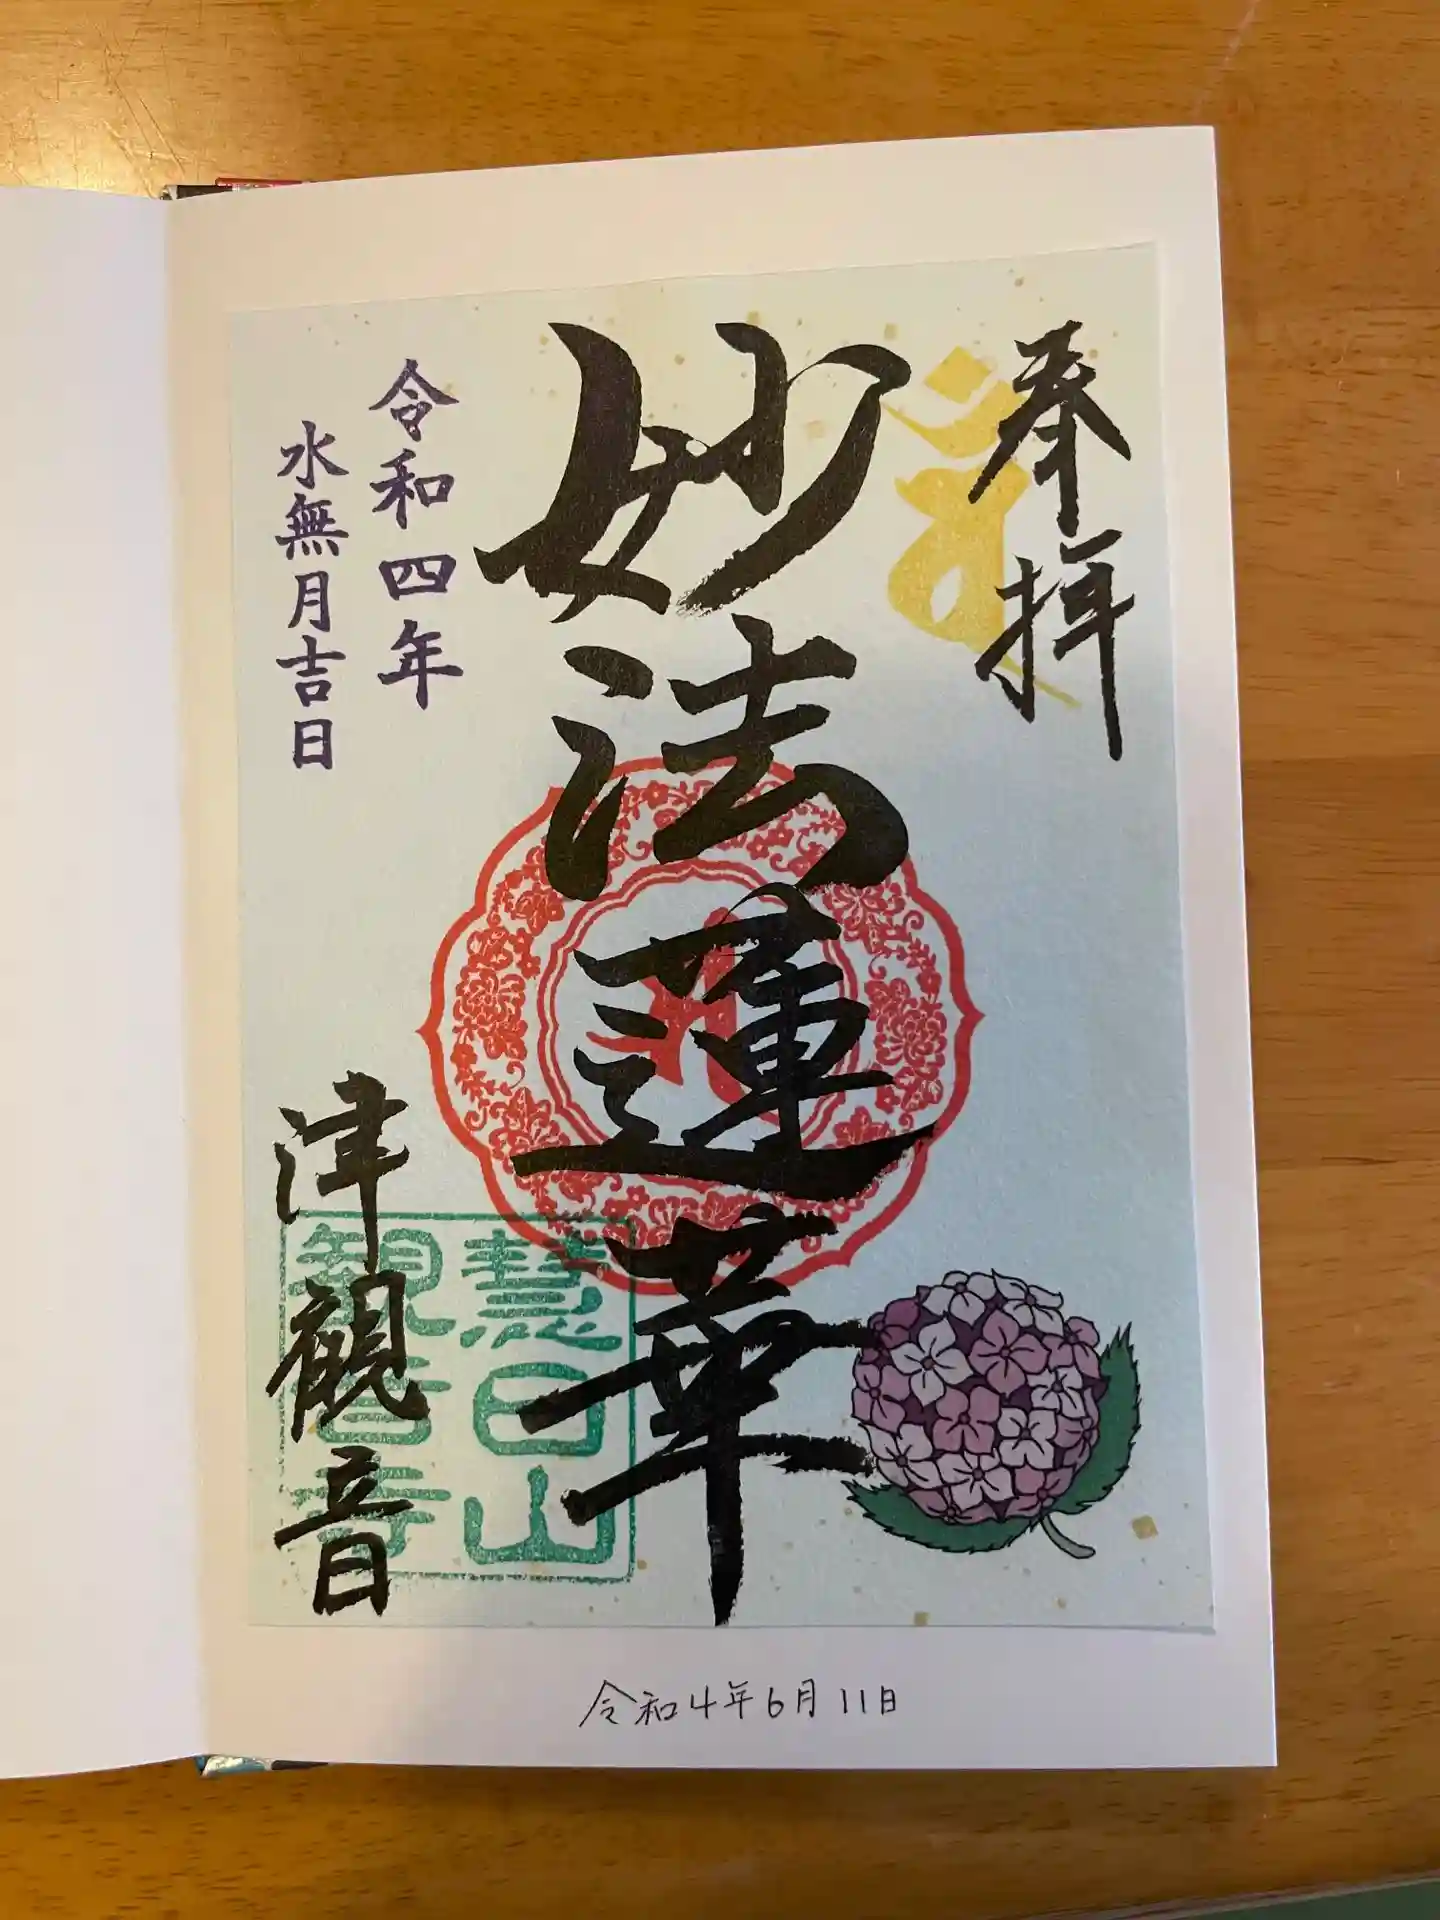 奉拝
妙法蓮華
令和四年
水無月吉日
津観音
慧日山
観音寺
令和4年6月11日